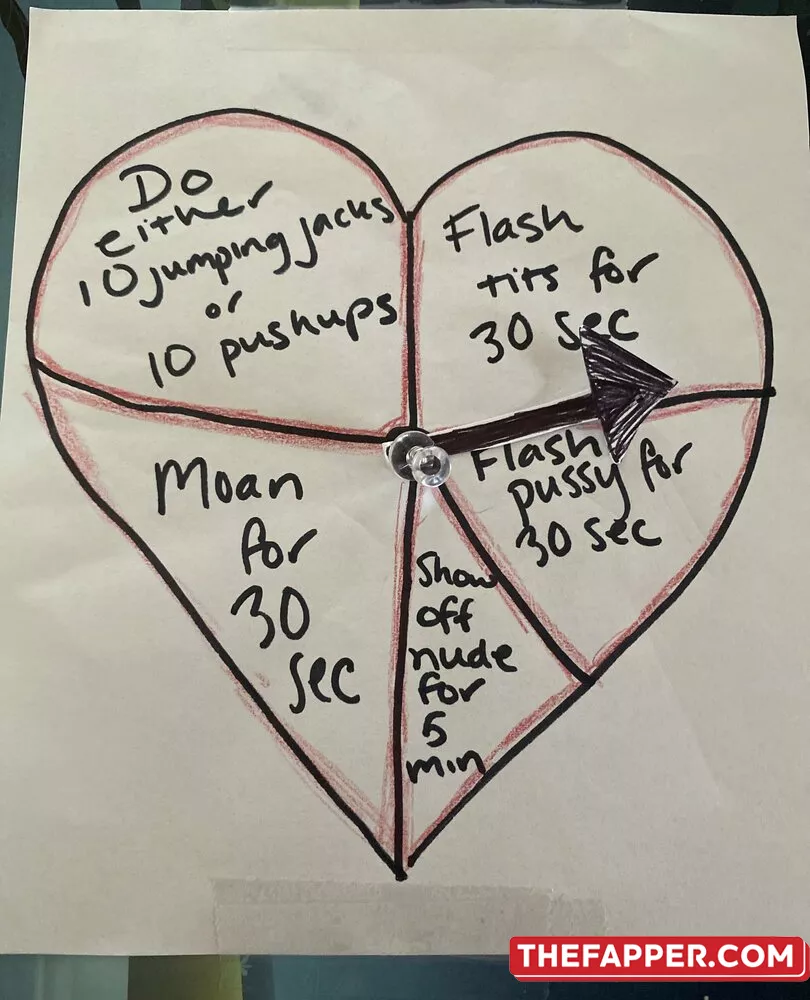 Do
either
10 jumping jacks
or
10 pushups
Flash
tits for
30 sec
Flash
pussy for
30 sec
Show
off
nude
for
5
min
Moan
for
30
sec
THEFAPPER.COM